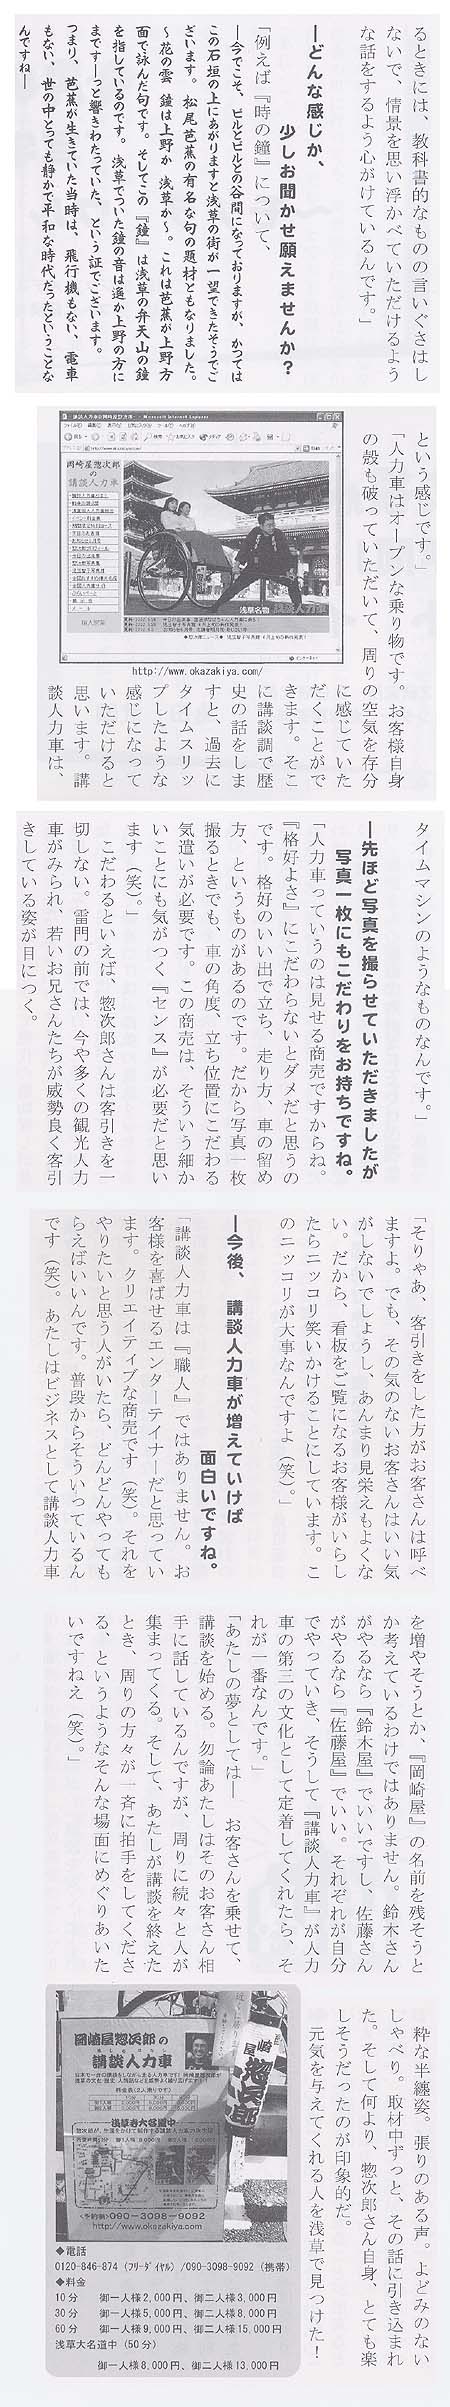 るときには、教科書的なものの言いぐさはし
ないで、情景を思い浮かべていただけるよう
な話をするよう心がけているんです。」
―どんな感じか、
少しお聞かせ願えませんか？
「例えば『時の鐘』について、
―今でこそ、ビルとビルとの谷間になっておりますが、かつては
この石垣の上にあがりますと浅草の街が一望できたそうでご
ざいます。松尾芭蕉の有名な句の題材ともなりました。
～花の雲　鐘は上野か　浅草か～。これは芭蕉が上野方
面で詠んだ句です。そしてこの『鐘』は浅草の弁天山の鐘
を指しているのです。浅草でついた鐘の音は遥か上野の方に
まですーっと響きわたっていた、という証でございます。
つまり、芭蕉が生きていた当時は、飛行機もない、電車
もない、世の中とっても静かで平和な時代だったということな
んですね―
という感じです。」
「人力車はオープンな乗り物です。お客様自身
の殻も破っていただいて、周りの空気を存分
に感じていた
だくことがで
きます。そこ
に講談調で歴
史の話をしま
すと、過去に
タイムスリッ
プしたような
感じになって
いただけると
思います。講
談人力車は、
岡崎屋惣次郎
の
講談人力車
浅草名物 講談人力車
http://www.okazakiya.com/
タイムマシンのようなものなんです。」
―先ほど写真を撮らせていただきましたが
写真一枚にもこだわりをお持ちですね。
「人力車っていうのは見せる商売ですからね。
『格好よさ』にこだわらないとダメだと思うの
です。格好のいい出で立ち、走り方、車の留め
方、というものがあるのです。だから写真一枚
撮るときでも、車の角度、立ち位置にこだわる
気遣いが必要です。この商売は、そういう細か
いことにも気がつく『センス』が必要だと思い
ます（笑）。」
こだわるといえば、惣次郎さんは客引きを一
切しない。雷門の前では、今や多くの観光人力
車がみられ、若いお兄さんたちが威勢良く客引
きしている姿が目につく。
「そりゃあ、客引きをした方がお客さんは呼べ
ますよ。でも、その気のないお客さんはいい気
がしないでしょうし、あんまり見栄えもよくな
い。だから、看板をご覧になるお客様がいらし
たらニッコリ笑いかけることにしています。こ
のニッコリが大事なんですよ（笑）。」
―今後、講談人力車が増えていけば
面白いですね。
「講談人力車は『職人』ではありません。お
客様を喜ばせるエンターテイナーだと思ってい
ます。クリエイティブな商売です（笑）。それを
やりたいと思う人がいたら、どんどんやっても
らえばいいんです。普段からそういっているん
です（笑）。あたしはビジネスとして講談人力車
を増やそうとか、『岡崎屋』の名前を残そうと
か考えているわけではありません。鈴木さん
がやるなら『鈴木屋』でいいですし、佐藤さん
がやるなら『佐藤屋』でいい。それぞれが自分
でやっていき、そうして『講談人力車』が人力
車の第三の文化として定着してくれたら、そ
れが一番なんです。」
「あたしの夢としては―　お客さんを乗せて、
講談を始める。勿論あたしはそのお客さん相
手に話しているんですが、周りに続々と人が
集まってくる。そして、あたしが講談を終えた
とき、周りの方々が一斉に拍手をしてくださ
る、というようなそんな場面にめぐりあいた
いですねえ（笑）。」
粋な半纏姿。張りのある声。よどみのない
しゃべり。取材中ずっと、その話に引き込まれ
た。そして何より、惣次郎さん自身、とても楽
しそうだったのが印象的だ。
元気を与えてくれる人を浅草で見つけた！
岡崎屋惣次郎の
講談人力車
浅草お大名道中
＜予約制＞090-3098-9092
http://www.okazakiya.com
岡崎屋
惣次郎
◆電話
0120-846-874（フリーダイヤル）/090-3098-9092（携帯）
◆料金
10分　御一人様2,000円、御二人様3,000円
30分　御一人様5,000円、御二人様8,000円
60分　御一人様9,000円、御二人様15,000円
浅草大名道中（50分）
御一人様8,000円、御二人様13,000円